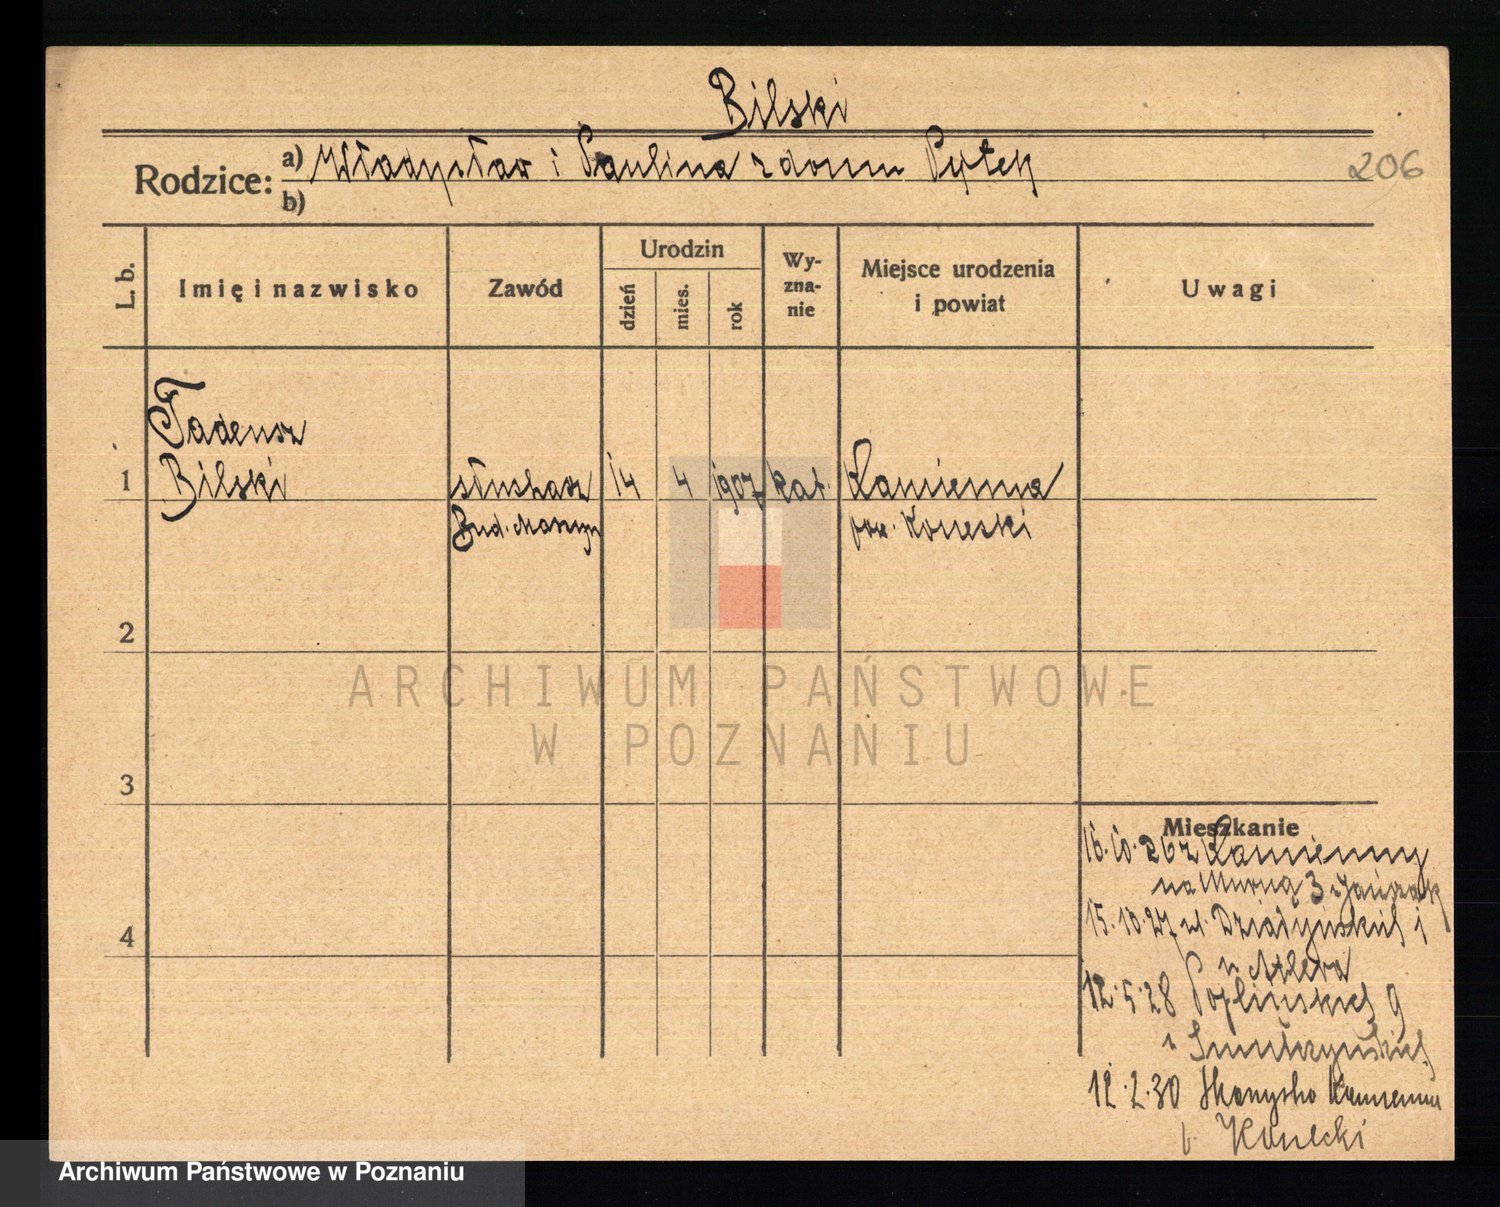 Bilski
Rodzice: a) Władysław i Paulina z domu Pytek
b)
206
L. b.
Imię i nazwisko
Zawód
Urodzin
dzień
mies.
rok
Wy-
zna-
nie
Miejsce urodzenia
i powiat
Uwagi
Tadeusz
1 Bilski słuchacz 14 4 1907 kat. Kamienna
Bud. Maszyn pow. Konecki
2
3
4
ARCHIWUM PAŃSTWOWE
W POZNANIU
Mieszkanie
16.10.26 z Kamienny
na Murną 3
15.10.27 ul. Działyńskich
u Adlera
12.5.28 Poplińskich 9
u
12.2.30 Kamienna
Konecki
Archiwum Państwowe w Poznaniu